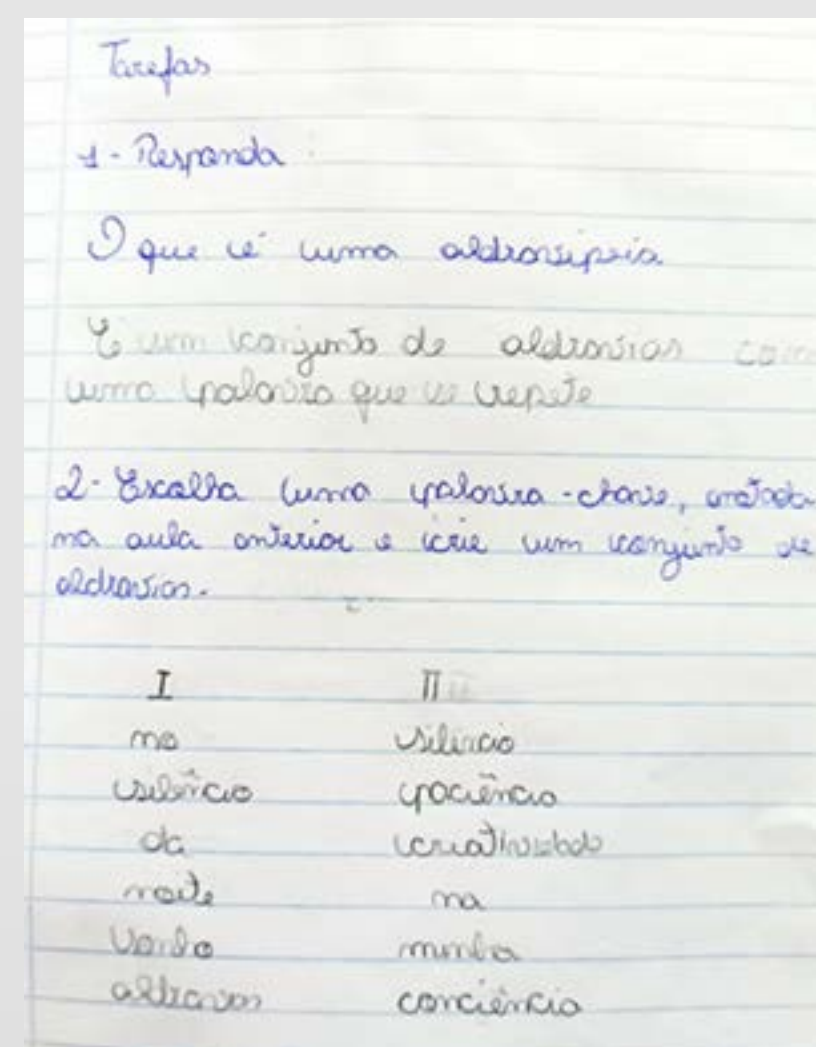 Tarefas
1 - Responda:
O que é uma aldravipéia
É um conjunto de aldravias com
uma palavra que se repete
2- Escolha uma palavra-chave, anotada
na aula anterior e crie um conjunto de
aldravias.
I II
no silêncio
silêncio paciência
da criatividade
noite na
minha
aldravias conciência